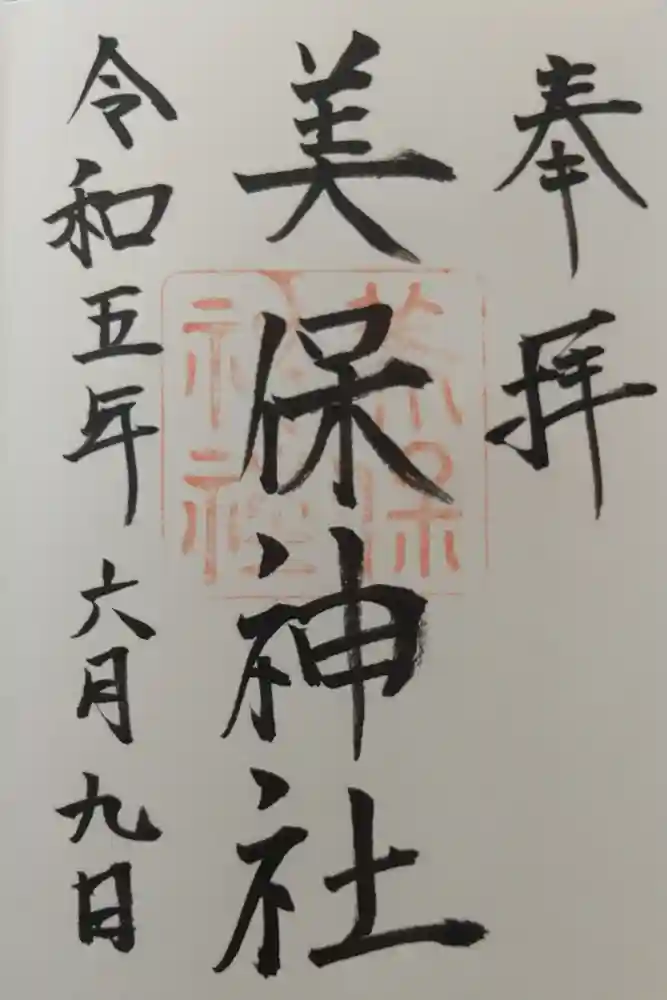 奉拝
美保神社
美保
神社
令和五年六月九日